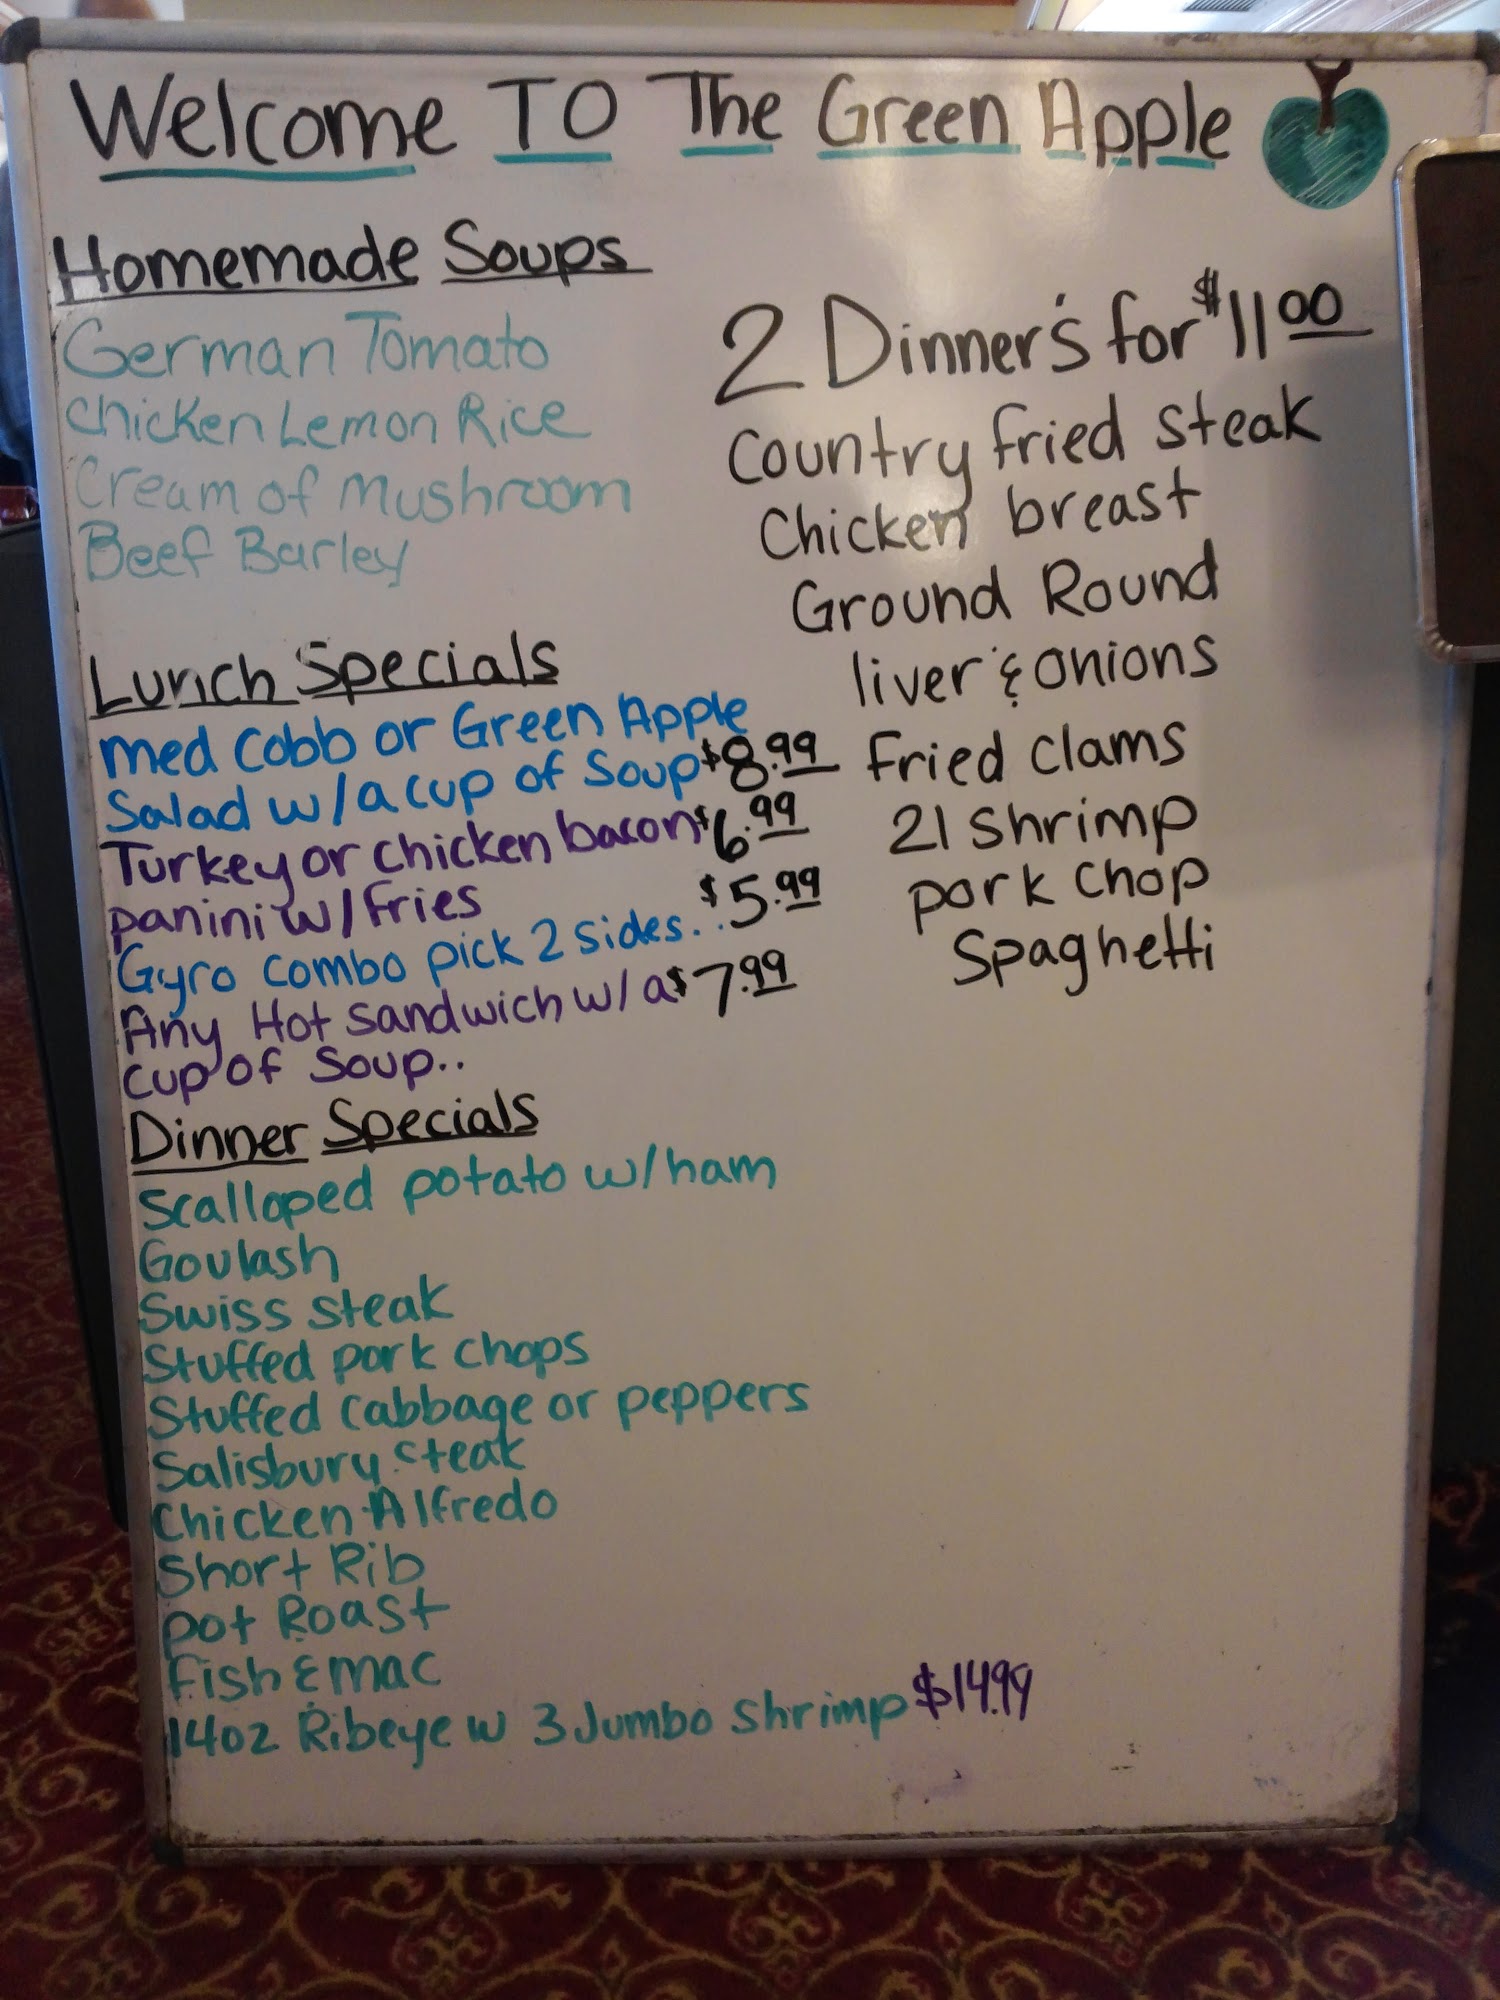 Welcome TO The Green Apple
Homemade Soups
German Tomato
Chicken Lemon Rice
Cream of Mushroom
Beef Barley
Lunch Specials
med Cobb or Green Apple
Salad w/a cup of Soup $8.99
Turkey or chicken bacon $6.99
panini w/Fries
Gyro combo pick 2 sides.. $5.99
Any Hot sandwich w/ a $7.99
cup of Soup..
Dinner Specials
Scalloped potato w/ham
Goulash
Swiss steak
Stuffed pork chops
Stuffed Cabbage or peppers
Salisbury steak
Chicken Alfredo
Short Rib
Pot Roast
Fish & mac
14oz Ribeye w 3 Jumbo Shrimp $14.99
2 Dinner's for $11.00
Country fried steak
Chicken breast
Ground Round
liver & onions
Fried Clams
21 Shrimp
pork chop
Spaghetti